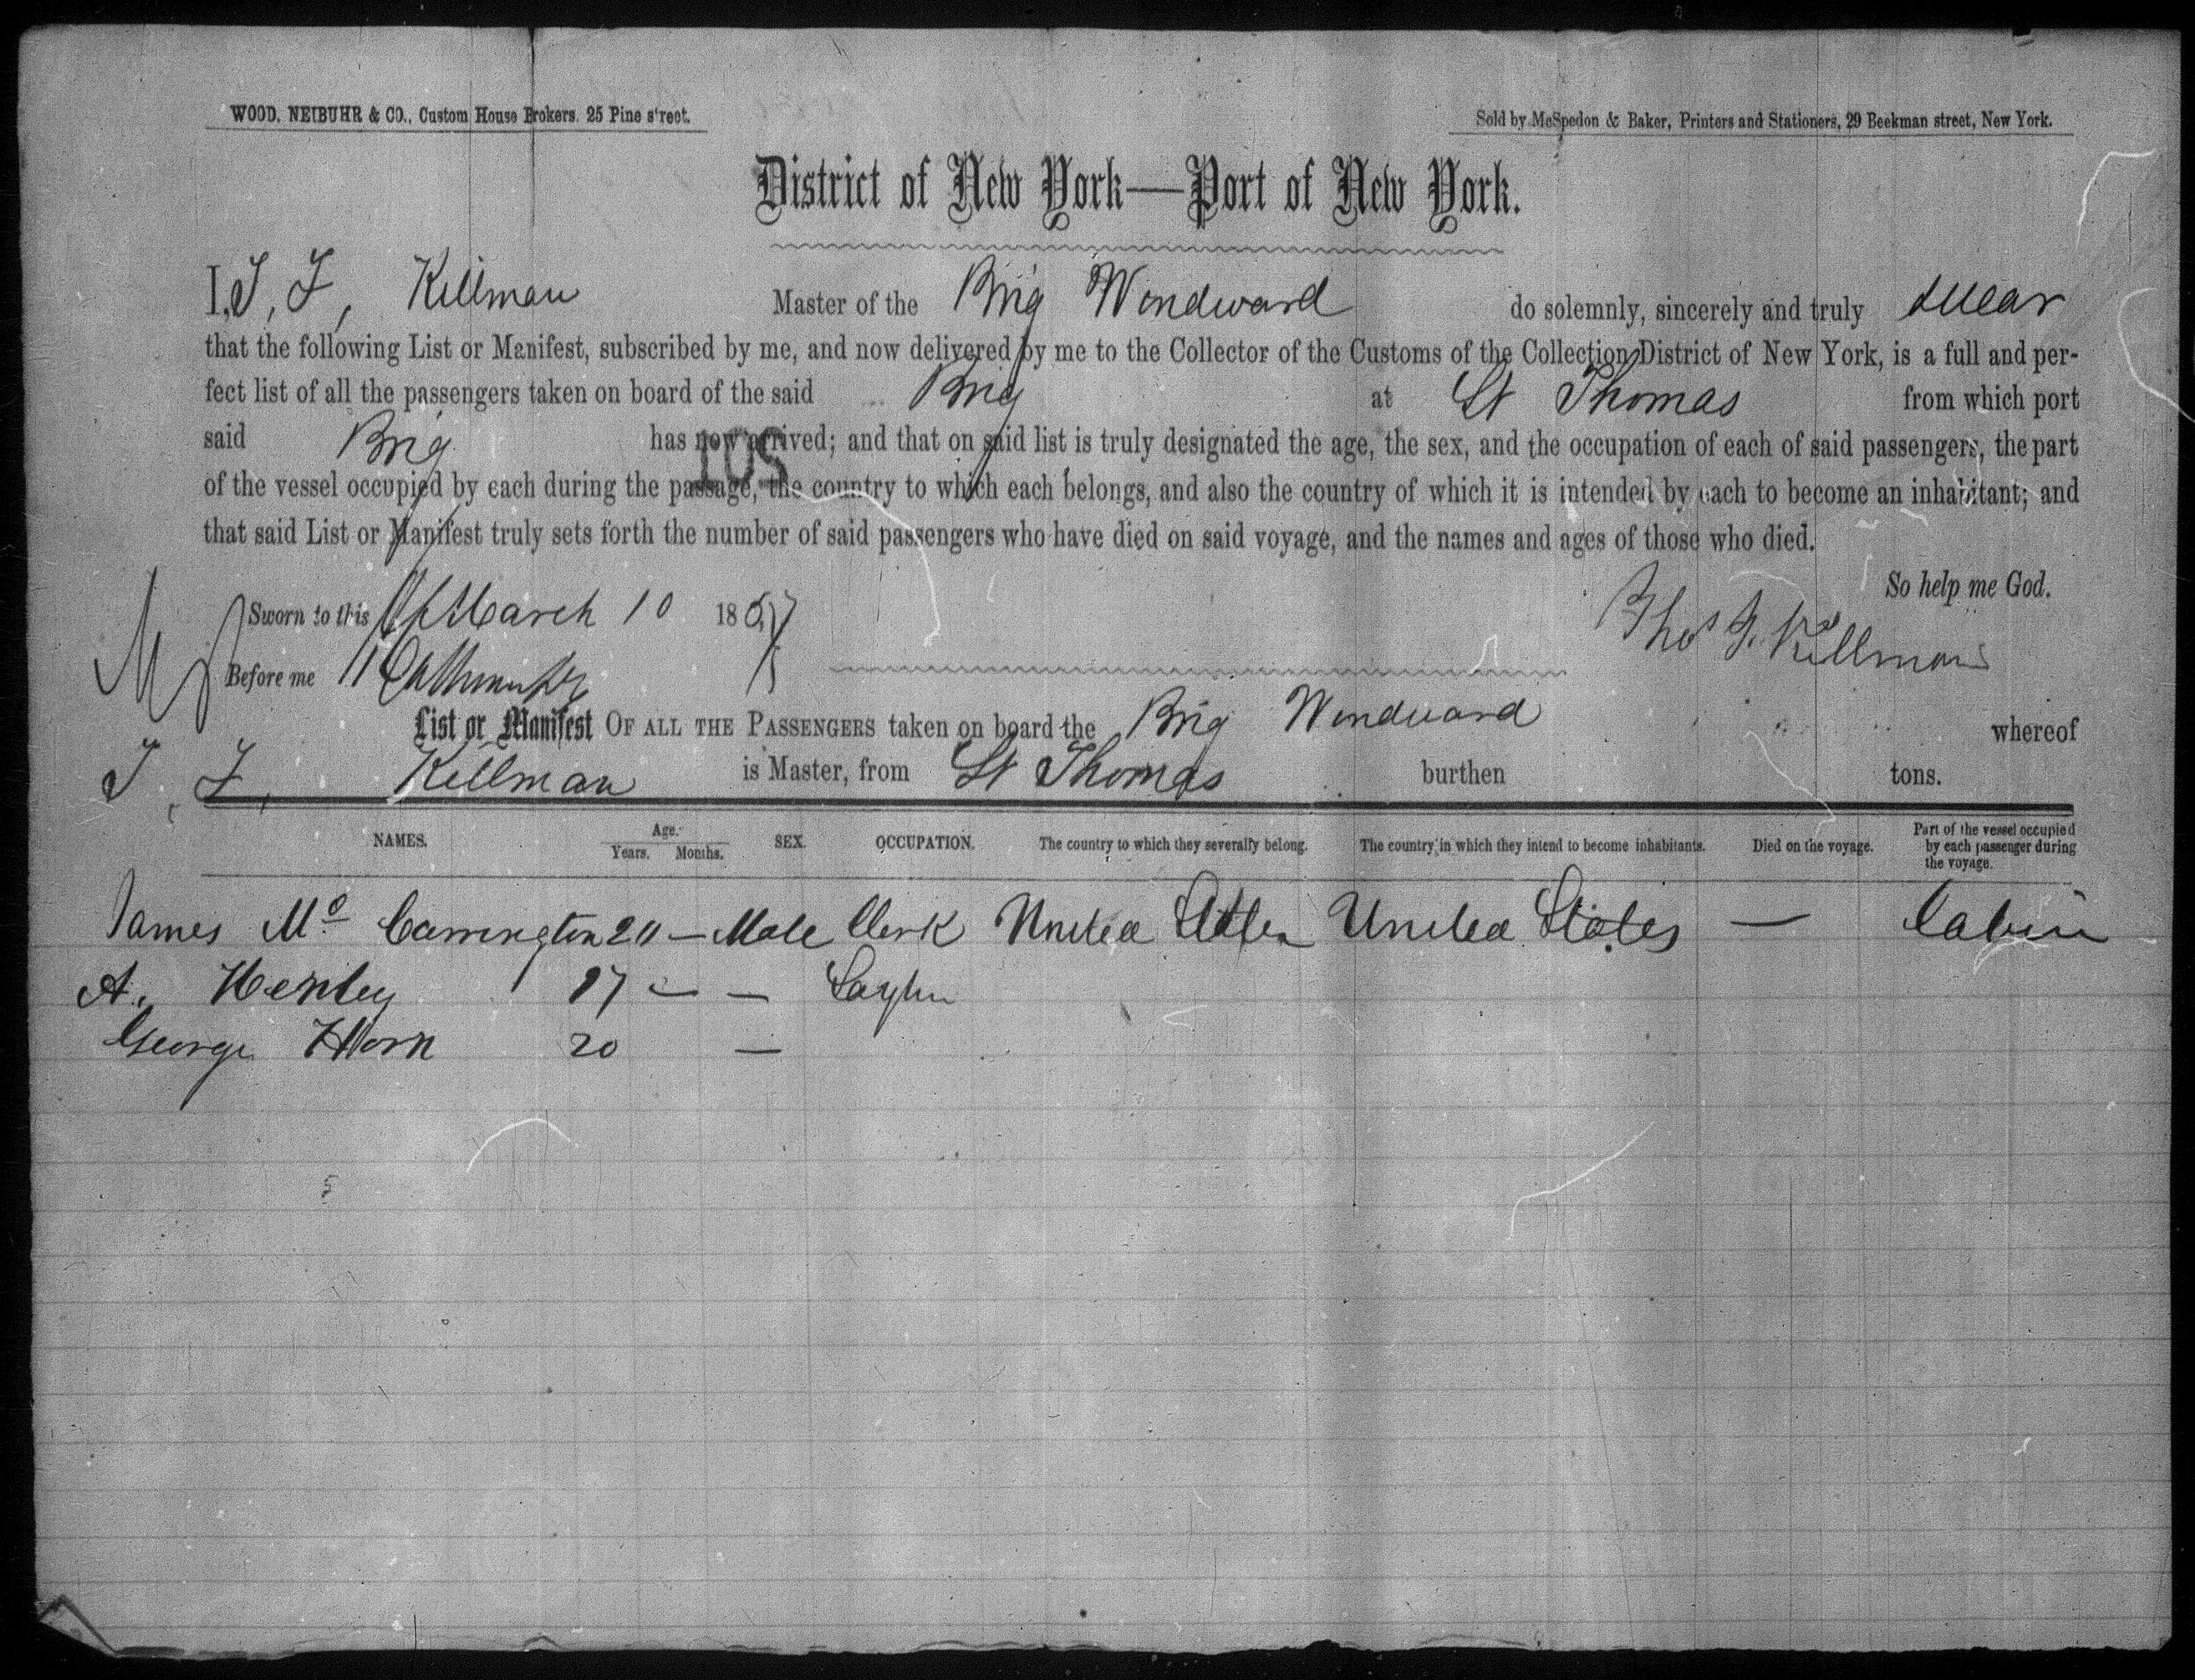 WOOD, NEIBUHR & CO., Custom House Brokers. 25 Pine street.
Sold by McSpedon & Baker, Printers and Stationers, 29 Beekman street, New York.
District of New York—Port of New York.
I, T, F, Killman Master of the Brig Windward do solemnly, sincerely and truly swear
that the following List or Manifest, subscribed by me, and now delivered by me to the Collector of the Customs of the Collection District of New York, is a full and per-
fect list of all the passengers taken on board of the said Brig at St Thomas from which port
said Brig has now arrived; and that on said list is truly designated the age, the sex, and the occupation of each of said passengers, the part
105
of the vessel occupied by each during the passage, the country to which each belongs, and also the country of which it is intended by each to become an inhabitant; and
that said List or Manifest truly sets forth the number of said passengers who have died on said voyage, and the names and ages of those who died.
So help me God.
Sworn to this March 10 1857
Thos F. Killman
Before me
List or Manifest OF ALL THE PASSENGERS taken on board the Brig Windward whereof
T, F, Killman is Master, from St Thomas burthen tons.
NAMES. Age. Years. Months. SEX. OCCUPATION. The country to which they severally belong. The country in which they intend to become inhabitants. Died on the voyage. Part of the vessel occupied by each passenger during the voyage.
James Mc Carrington 20 — Male Clerk United States United States — Cabin
A. Henley 17 — —
George Horn 20 —